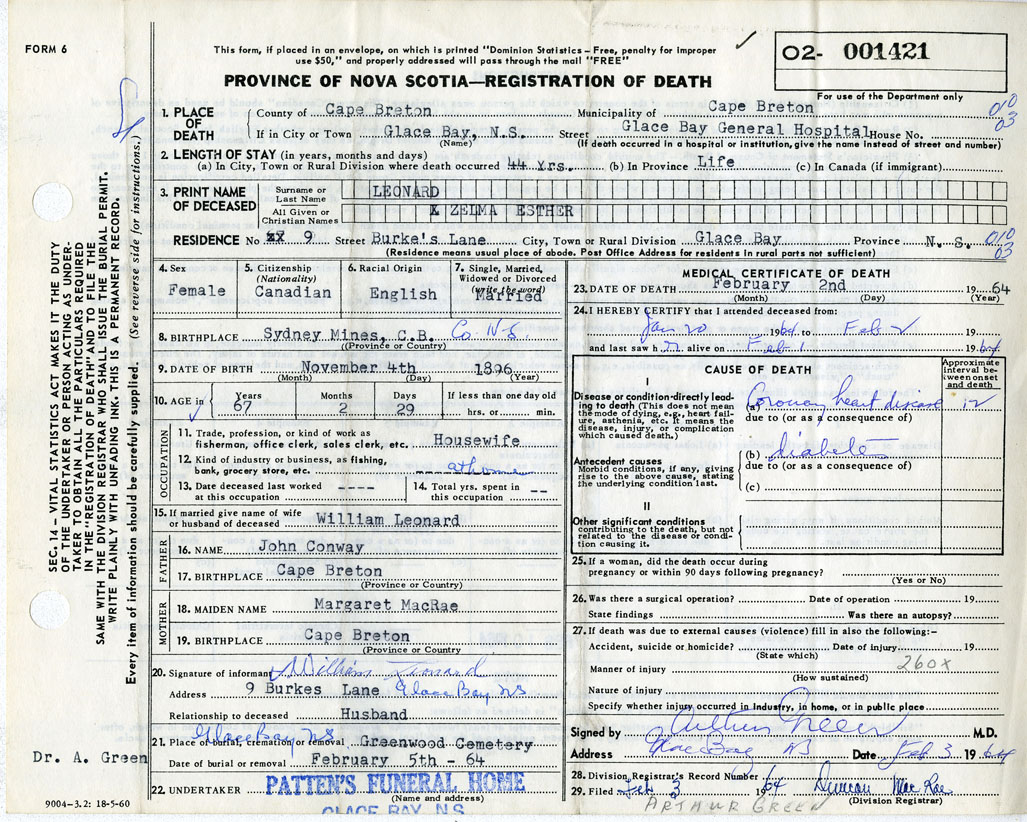 FORM 6
This form, if placed in an envelope, on which is printed "Dominion Statistics - Free, penalty for improper
use $50," and properly addressed will pass through the mail "FREE"
O2- 001421
For use of the Department only
PROVINCE OF NOVA SCOTIA—REGISTRATION OF DEATH
1. PLACE OF DEATH
County of Cape Breton Municipality of Cape Breton 010
If in City or Town Glace Bay, N.S. Street Glace Bay General Hospital House No. 03
(Name) (If death occurred in a hospital or institution, give the name instead of street and number)
2. LENGTH OF STAY (in years, months and days)
(a) In City, Town or Rural Division where death occurred 44 Yrs. (b) In Province Life (c) In Canada (if immigrant)
3. PRINT NAME OF DECEASED
Surname or Last Name LEONARD
All Given or Christian Names ZELMA ESTHER
RESIDENCE No 9 Street Burke's Lane City, Town or Rural Division Glace Bay Province N. S. 010
03
(Residence means usual place of abode. Post Office Address for residents in rural parts not sufficient)
4. Sex
Female
5. Citizenship
(Nationality)
Canadian
6. Racial Origin
English
7. Single, Married,
Widowed or Divorced
(write the word)
Married
8. BIRTHPLACE Sydney Mines, C.B. Co. N S.
(Province or Country)
9. DATE OF BIRTH November 4th 1896
(Month) (Day) (Year)
10. AGE in Years Months Days If less than one day old
67 2 29 hrs. or min.
OCCUPATION
11. Trade, profession, or kind of work as
fisherman, office clerk, sales clerk, etc. Housewife
12. Kind of industry or business, as fishing,
bank, grocery store, etc. at home
13. Date deceased last worked ----
at this occupation
14. Total yrs. spent in
this occupation --
15. If married give name of wife
or husband of deceased William Leonard
FATHER
16. NAME John Conway
17. BIRTHPLACE Cape Breton
(Province or Country)
MOTHER
18. MAIDEN NAME Margaret MacRae
19. BIRTHPLACE Cape Breton
(Province or Country)
20. Signature of informant William Leonard
Address 9 Burkes Lane Glace Bay NS
Relationship to deceased Husband
Glace Bay N S
21. Place of burial, cremation or removal Greenwood Cemetery
Date of burial or removal February 5th - 64
22. UNDERTAKER PATTEN'S FUNERAL HOME
(Name and address)
GLACE BAY, N.S.
MEDICAL CERTIFICATE OF DEATH
23. DATE OF DEATH February 2nd 19 64
(Month) (Day) (Year)
24. I HEREBY CERTIFY that I attended deceased from:
Jan 20 1964 to Feb 2 19
and last saw h alive on Feb 1 19 64
CAUSE OF DEATH
Approximate
interval be-
tween onset
and death
I
Disease or condition directly lead-
ing to death (This does not mean
the mode of dying, e.g., heart fail-
ure, asthenia, etc. It means the
disease, injury, or complication
which caused death.)
(a) Coronary heart disease
due to (or as a consequence of)
(b) diabetes
due to (or as a consequence of)
(c)
Antecedent causes
Morbid conditions, if any, giving
rise to the above cause, stating
the underlying condition last.
II
Other significant conditions
contributing to the death, but not
related to the disease or condi-
tion causing it.
25. If a woman, did the death occur during
pregnancy or within 90 days following pregnancy?
(Yes or No)
26. Was there a surgical operation? Date of operation 19
State findings Was there an autopsy?
27. If death was due to external causes (violence) fill in also the following:—
Accident, suicide or homicide? Date of injury 19
(State which)
260x
Manner of injury
(How sustained)
Nature of injury
Specify whether injury occurred in industry, in home, or in public place
Signed by Arthur Green M.D.
Address Glace Bay NS Date Feb 3 19 64
28. Division Registrar's Record Number
29. Filed Feb 3 1964 Duncan MacRae
(Division Registrar)
ARTHUR GREEN
Dr. A. Green
9004-3.2: 18-5-60
SEC. 14 - VITAL STATISTICS ACT MAKES IT THE DUTY
OF THE UNDERTAKER OR PERSON ACTING AS UNDER-
TAKER TO OBTAIN ALL THE PARTICULARS REQUIRED
IN THE "REGISTRATION OF DEATH" AND TO FILE THE
SAME WITH THE DIVISION REGISTRAR WHO SHALL ISSUE THE BURIAL PERMIT.
WRITE PLAINLY WITH UNFADING INK. THIS IS A PERMANENT RECORD.
Every item of information should be carefully supplied. (See reverse side for instructions.)